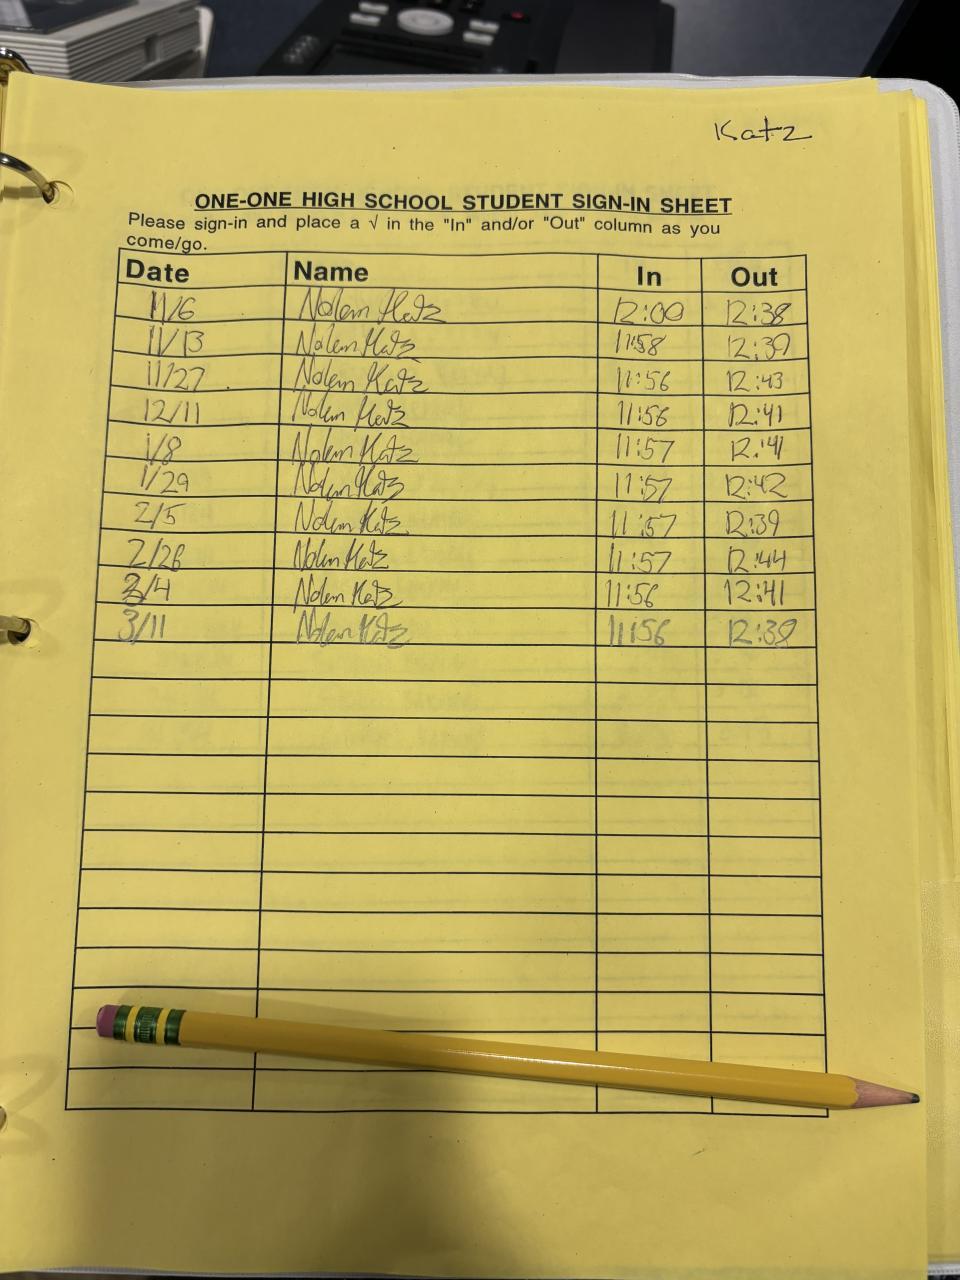 Katz
ONE-ONE HIGH SCHOOL STUDENT SIGN-IN SHEET
Please sign-in and place a √ in the "In" and/or "Out" column as you
come/go.
Date Name In Out
11/6 Nolan Katz 12:00 12:38
11/13 Nolan Katz 11:58 12:39
11/27 Nolan Katz 11:56 12:43
12/11 Nolan Katz 11:56 12:41
1/8 Nolan Katz 11:57 12:41
1/29 Nolan Katz 11:57 12:42
2/5 Nolan Katz 11:57 12:39
2/26 Nolan Katz 11:57 12:44
3/4 Nolan Katz 11:56 12:41
3/11 Nolan Katz 11:56